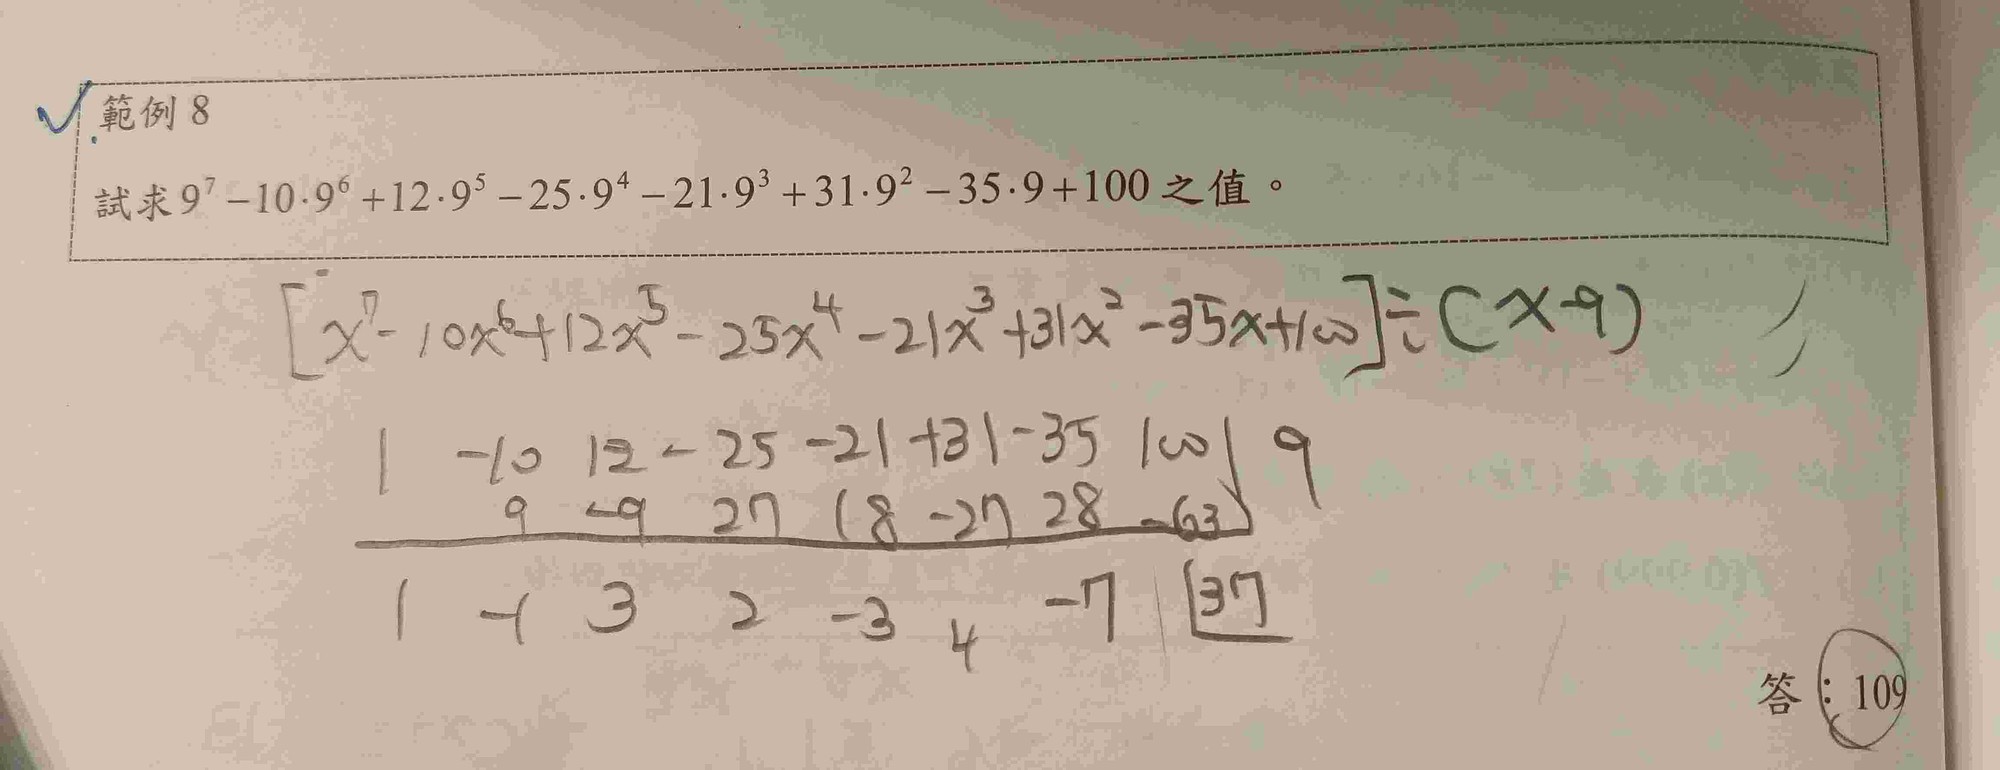 範例 8
試求 9⁷ −10·9⁶ +12·9⁵ −25·9⁴ −21·9³ +31·9² −35·9+100 之值。
[x⁷-10x⁶+12x⁵-25x⁴-21x³+31x²-35x+100]÷(x-9)
1 -10 12 -25 -21 +31 -35 100 | 9
9 -9 27 18 -27 28 -63
1 -1 3 2 -3 4 -7 37
答:109